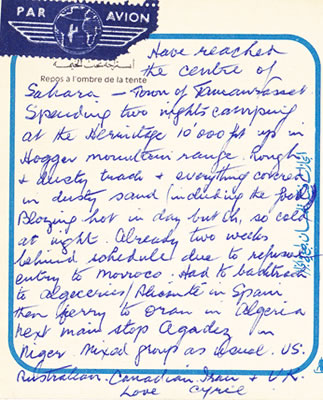 PAR AVION
Repos à l'ombre de la tente
Have reached
the centre of
Sahara - Town of Tamanrasset
Spending two nights camping
at the Hermitage 10000 ft up in
Hoggar mountain range. Rough
+ dusty track + everything covered
in dusty sand (including the food
Blazing hot in day but oh, so cold
at night. Already two weeks
behind schedule due to refused
entry to Morroco. Had to backtrack
to Algeceries / Alicante in Spain
then ferry to Oran in Algeria
next main stop Agadez in
Niger. Mixed group as usual. US.
Australian. Canadian, Iran + U.K.
Love Cyril